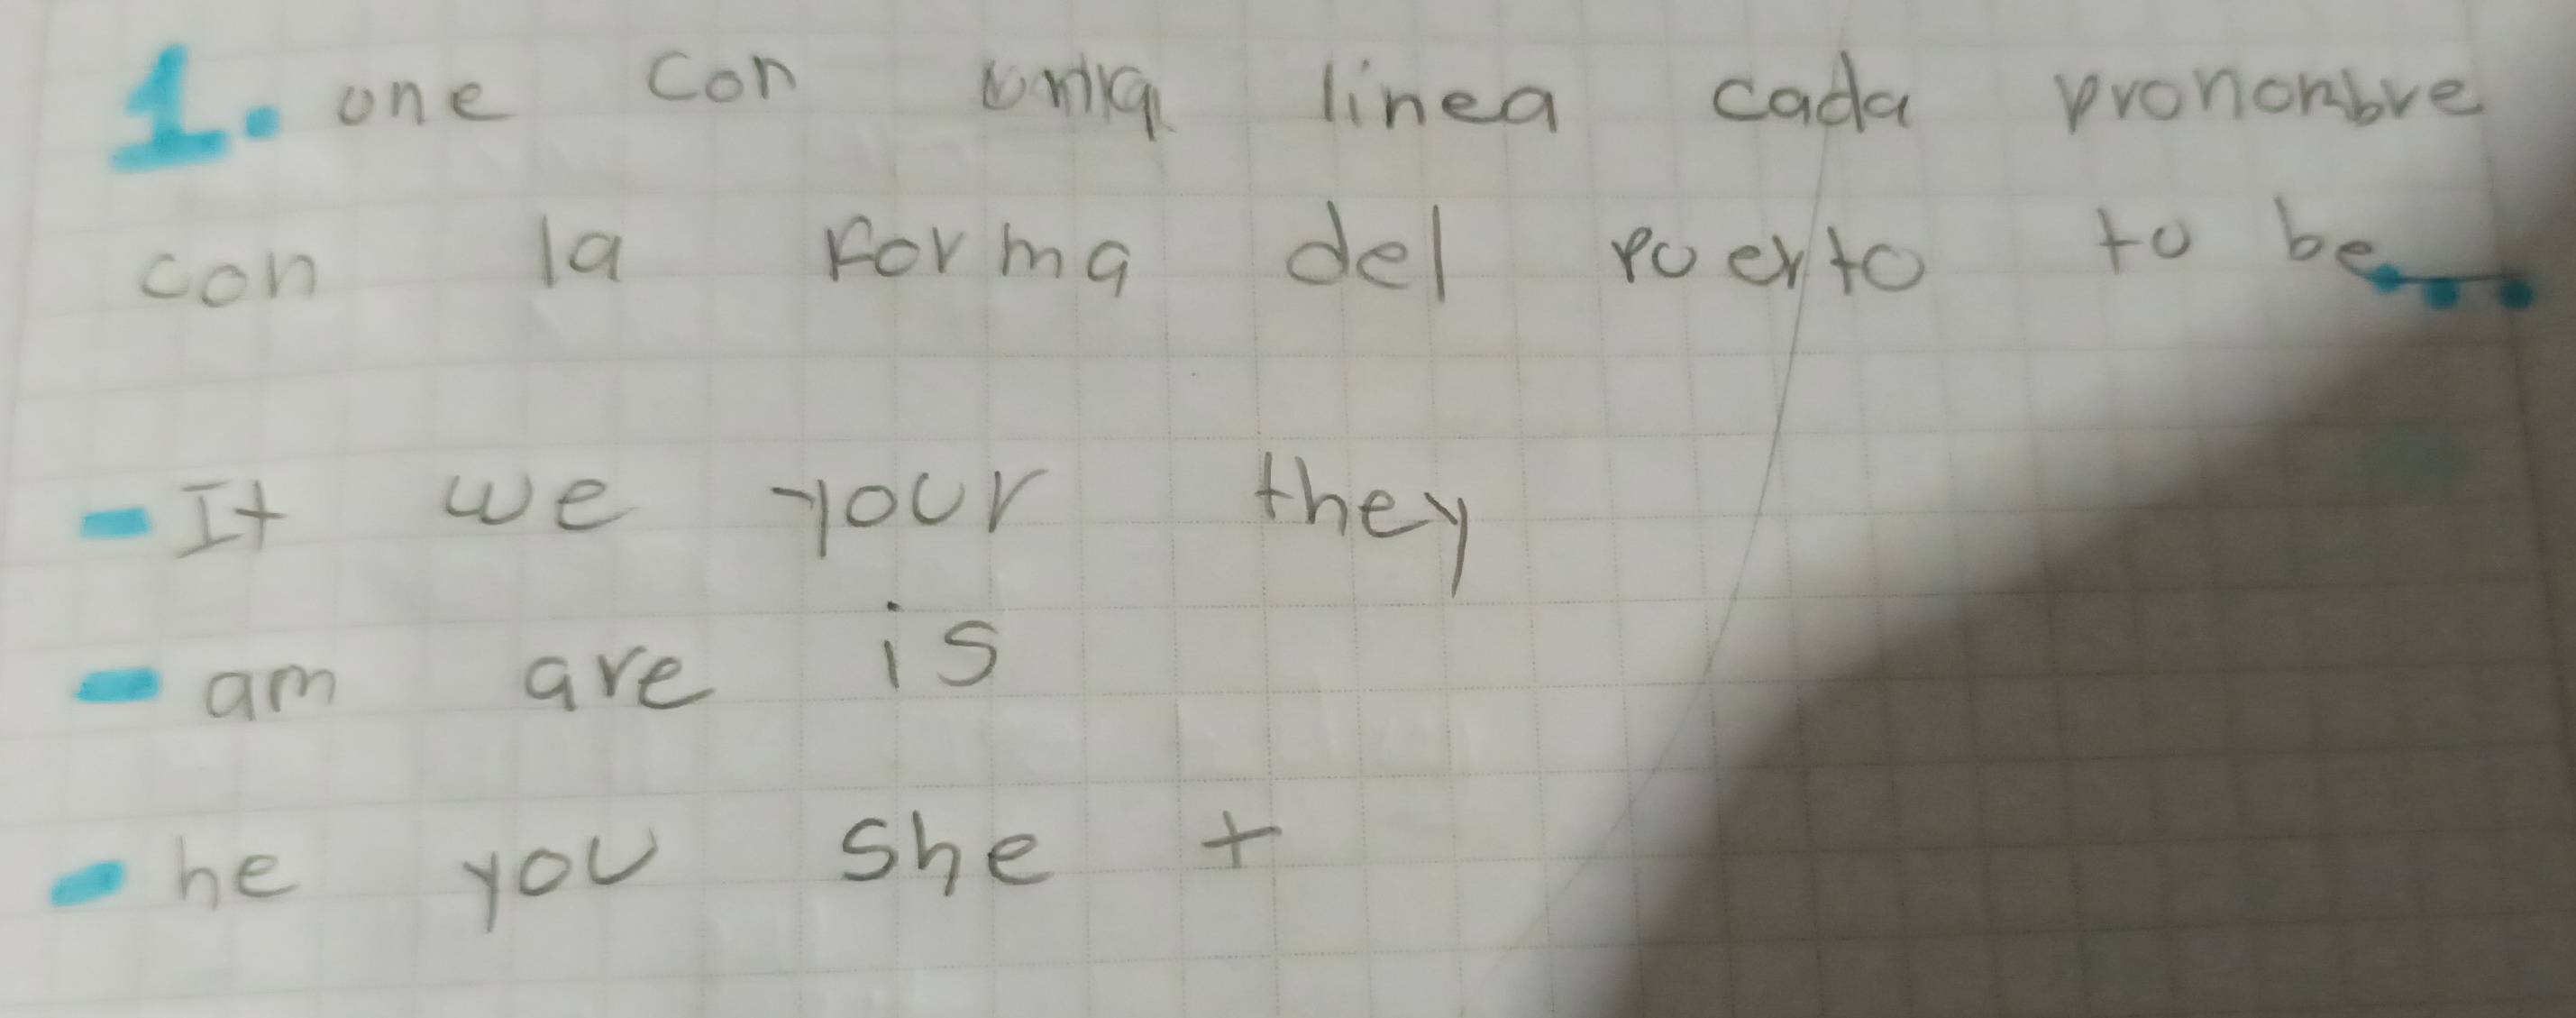 1. one con linea cada prononbre
con la forma del puerto to be
- It we your they
- am are is
- he you she +